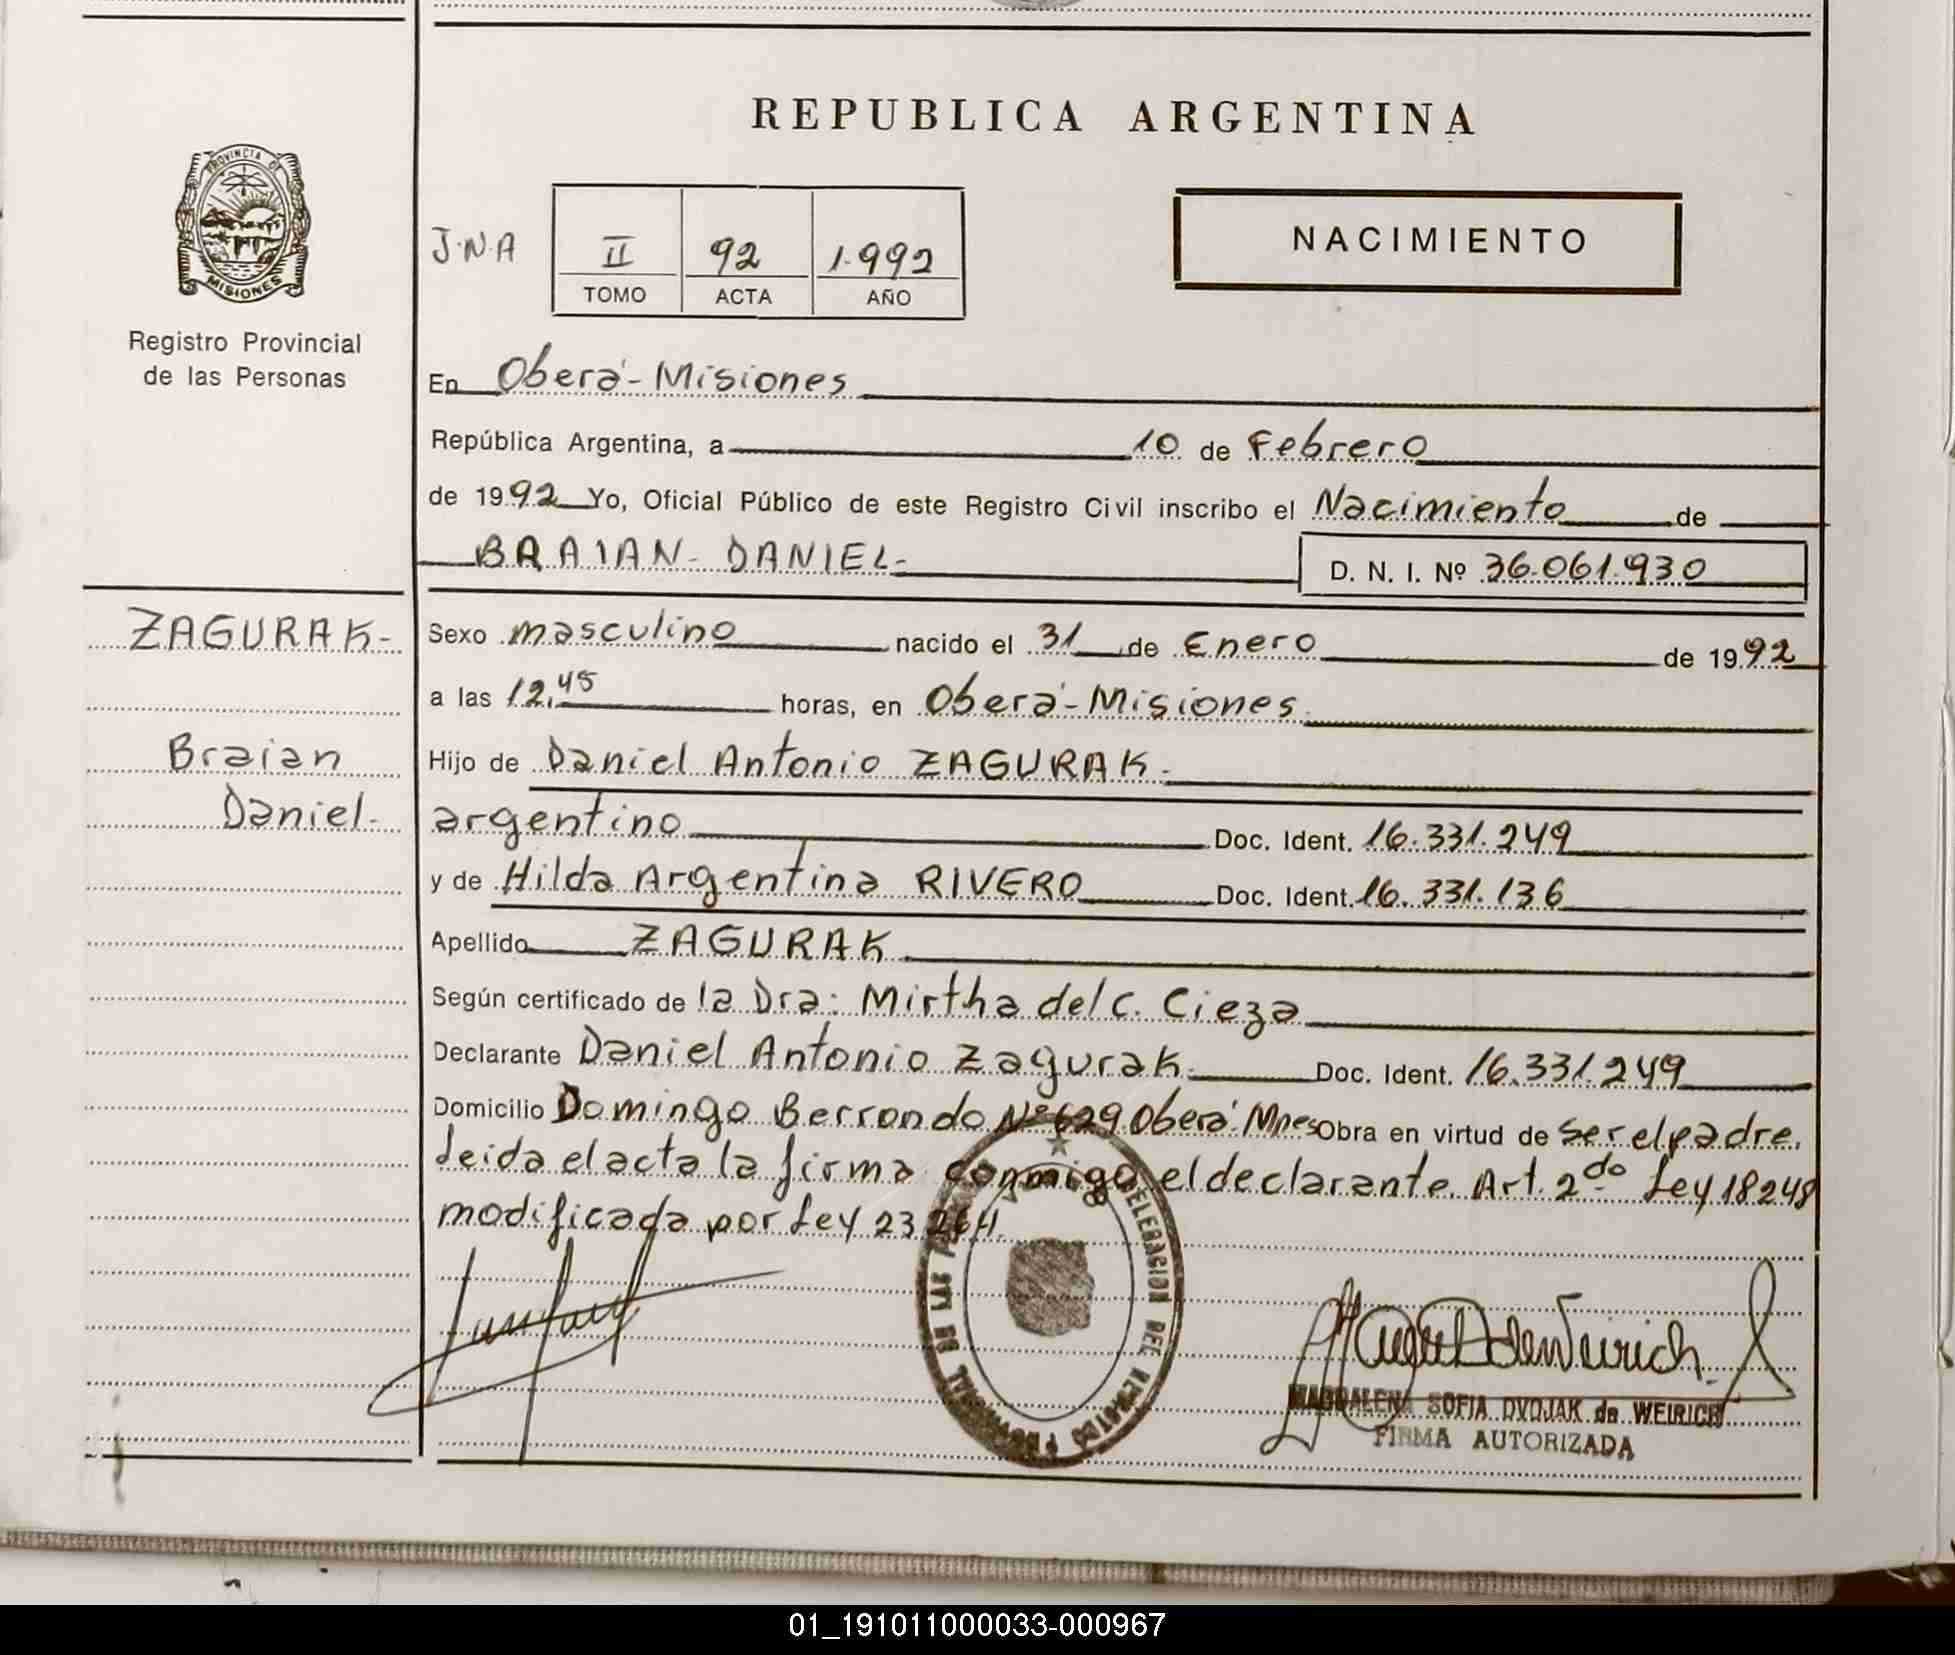 REPUBLICA ARGENTINA
PROVINCIA DE
MISIONES
Registro Provincial
de las Personas
J.N.A
II 92 1.992
TOMO ACTA AÑO
NACIMIENTO
En Oberá-Misiones
República Argentina, a 10 de Febrero
de 1992 Yo, Oficial Público de este Registro Civil inscribo el Nacimiento de
BRAIAN-DANIEL- D. N. I. Nº 36.061.930
ZAGURAK-
Braian
Daniel-
Sexo masculino nacido el 31 de Enero de 1992
a las 12,45 horas, en Oberá-Misiones.
Hijo de Daniel Antonio ZAGURAK-
argentino Doc. Ident. 16.331.249
y de Hilda Argentina RIVERO Doc. Ident. 16.331.136
Apellido ZAGURAK
Según certificado de la Dra: Mirtha del C. Cieza
Declarante Daniel Antonio Zagurak. Doc. Ident. 16.331.249
Domicilio Domingo Berrondo Nº 629 Oberá. Mnes Obra en virtud de ser el padre.
Leida el acta la firma conmigo el declarante. Art. 2do Ley 18248
modificada por Ley 23264.
DELEGACION DEL REGISTRO PROVINCIAL DE LAS
MAGDALENA SOFIA DVOJAK de WEIRICH
FIRMA AUTORIZADA
01_191011000033-000967